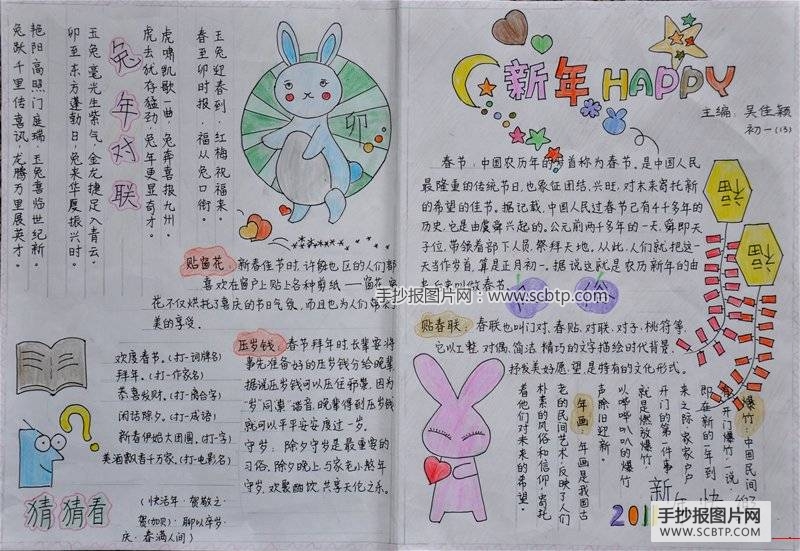 玉兔迎春到，红梅祝福来。
春至卯时报，福从兔口衔。
虎啸凯歌一曲，兔奔喜报九州。
虎去犹存猛劲，兔年更显奇才。
兔年对联
玉兔毫光生紫气，金龙捷足入青云。
卯至东方蓬勃日，兔来华厦振兴时。
艳阳高照门庭瑞，玉兔喜临世纪新。
兔跃千里传喜讯，龙腾万里展英才。
卯
贴窗花：新春佳节时，许多地区的人们都
喜欢在窗户上贴上各种剪纸——窗花。窗
花不仅烘托了喜庆的节日气氛，而且也为人们带来了
美的享受。
压岁钱：春节拜年时，长辈要将
事先准备好的压岁钱分给晚辈，
据说压岁钱可以压住邪祟，因为
“岁”同“祟”谐音，晚辈得到压岁钱
就可以平平安安度过一岁。
守岁：除夕守岁是最重要的
习俗，除夕晚上，与家老小熬年
守岁，欢聚酣饮，共享天伦之乐。
欢度春节。（打一词牌名）
拜年。（打一作家名）
恭喜发财。（打一离合字）
闲话除夕。（打一成语）
新春伊始大团圆。（打一字）
美酒飘香千万家。（打一电影名）
猜猜看
（快活年·贺敬之·
贺（加贝）·聊以卒岁·
庆·春满人间）
新年HAPPY
主编：吴佳颖
初一（13）
春节：中国农历年的岁首称为春节。是中国人民
最隆重的传统节日，也象征团结、兴旺，对未来寄托新
的希望的佳节。据记载，中国人民过春节已有4千多年的
历史，它是由虞舜兴起的。公元前两千多年的一天，舜即天
子位，带领着部下人员，祭拜天地。从此，人们就把这一
天当作岁首，算是正月初一。据说这就是农历新年的由
来，后来叫做春节。
福
福
手抄报图片网：www.scbtp.com
贴春联：春联也叫门对、春贴、对联、对子、桃符等，
它以工整、对偶、简洁、精巧的文字描绘时代背景，
抒发美好愿望，是特有的文化形式。
爆竹：中国民间
有“开门爆竹”一说
即在新的一年到
来之际，家家户户
开门的第一件事
就是燃放爆竹，
以哔哔叭叭的爆竹
声除旧迎新。
年画：年画是我国古
老的民间艺术，反映了人们
朴素的风俗和信仰，寄托
着他们对未来的希望。
新年快
201
手抄报图片网
WWW.SCBTP.COM